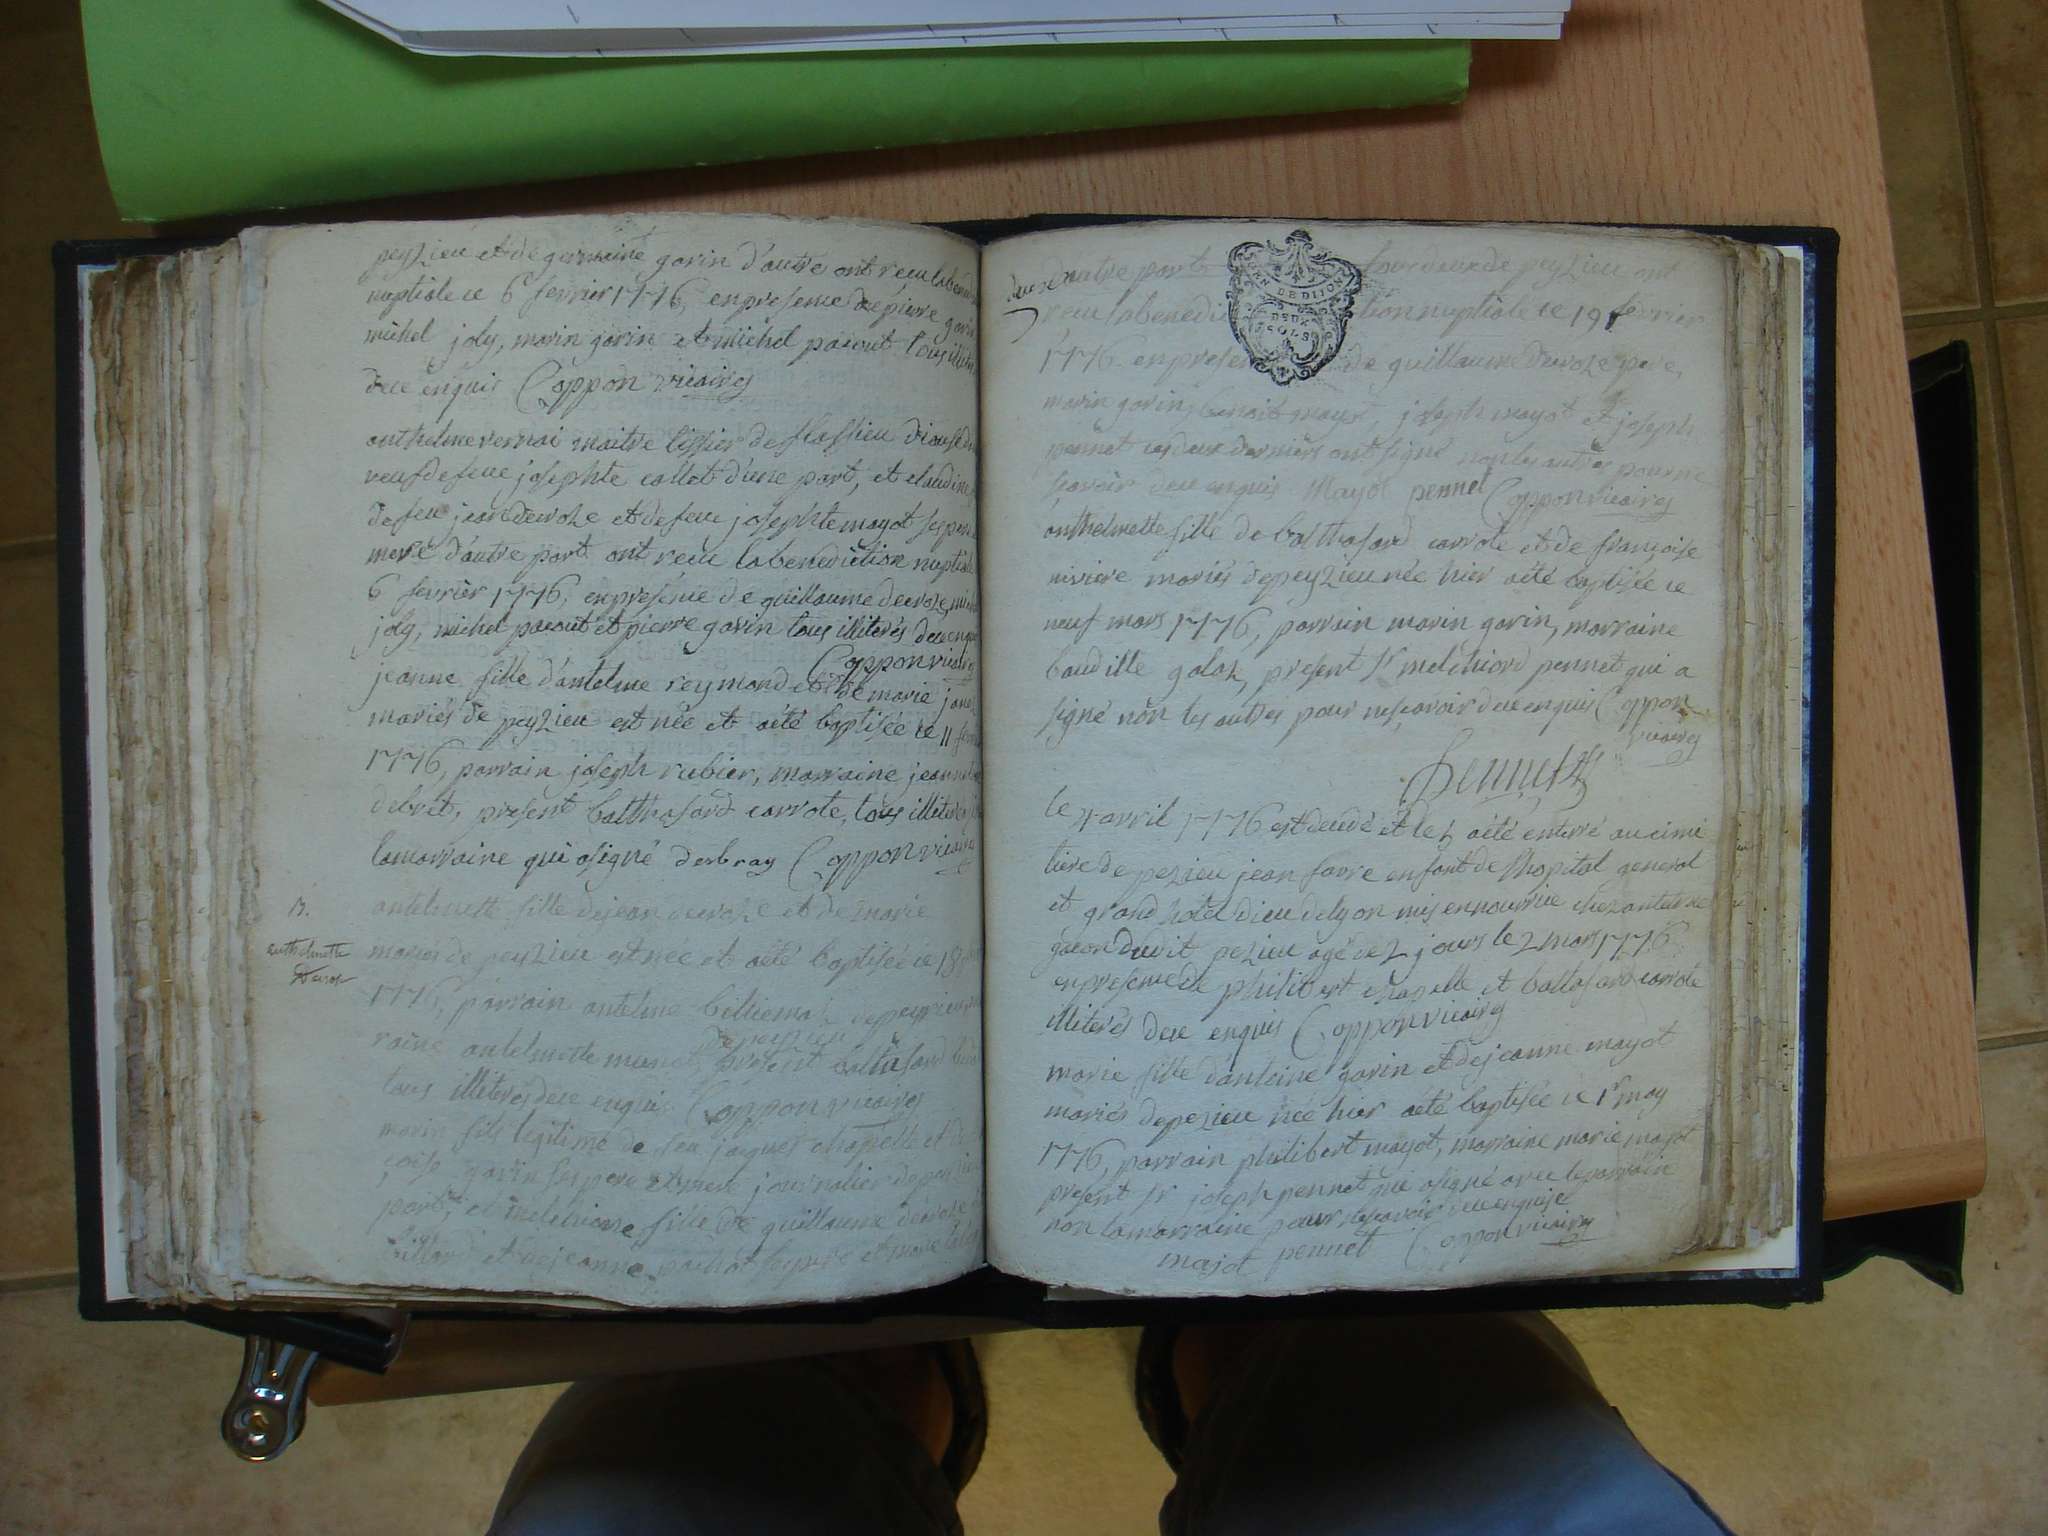 peyzieu et de germaine garin d'autre ont recu la bened
nuptiale ce 6 fevrier 1776, en presence de pierre garin
michel joly, marin garin et michel pacout tous illite
de ce enquis Coppon vicaires
anthelme vernai maitre tissier de flassieu
veuf de feue josephte collet d'une part, et claudine
de feu jean decroze et de feue josephte mayot ses pere
mere d'autre part ont recu la benediction nuptiale
6 fevrier 1776, en presence de guillaume decroze, mi
joly, michel pacout et pierre garin tous illiterés de ce enquis
Coppon vicaires
jeanne fille d'antelme reymond et de marie jane
mariés de peyzieu est née et a été baptisée le 11 fevr
1776, parrain joseph rubier, marraine jeanne
debret, present balthasard carrote, tous illiter
la marraine qui a signé debray Coppon vicaires
B. antelmette fille de jean decroze et de marie
anthelmette
Decroz
mariés de peyzieu est née et a été baptisée le 18
1776, parrain antelme billiemaz de peyzieu
de peyzieu
raine antelmette munet, present baltasard
tous illiterés de ce enquis Coppon vicaires
marin fils legitime de feu jacques chapelle et de
çoise garin ses pere et mere journalier de peyzieu
part, et melchione fille de guillaume decroze
billard et de jeanne pochat ses pere et mere
d'autre part tous deux de peyzieu ont
recu la benediction nuptiale ce 19 fevrier
1776 en presence de guillaume decroze pere,
GEN DE DIJON
DEUX
SOLS
marin garin, benoit mayot, joseph mayot et joseph
pennet ces deux derniers ont signé non les autres pour ne
scavoir de ce enquis Mayot pennet Coppon vicaires
anthelmette fille de balthasard carrote et de françoise
riviere mariés de peyzieu née hier a été baptisée ce
neuf mars 1776, parrain marin garin, marraine
baudille golaz, present Sr melchiord pennet qui a
signé non les autres pour ne scavoir de ce enquis Coppon
vicaires
Pennet
le 4 avril 1776 est decedé et le 5 a été enterré au cimi
tiere de pezieu jean favre enfant de l'hopital general
et grand hotel dieu de lyon mis en nourrice chez antelme
gacon dudit pezieu agé de 2 jours le 2 mars 1776
en presence de philibert chapelle et baltasard carrote
illiterés de ce enquis Coppon vicaires
marie fille d'antoine garin et de jeanne mayot
mariés de pezieu née hier a été baptisée ce 1r may
1776, parrain philibert mayot, marraine marie mayot
present Sr joseph pennet qui a signé avec le parrain
non la marraine pour ne scavoir de ce enquise
majot pennet Coppon vicaires